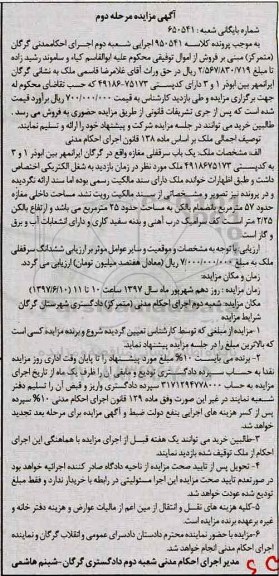 آگهی مزایده مرحله دوم
شماره بایگانی شعبه: ۶۵۰۵۴۱
به موجب پرونده کلاسه ۹۵۰۵۴۱ اجرایی شعبه دوم اجرای احکام مدنی گرگان
(متمرکز) مبنی بر فروش از اموال توقیفی محکوم علیه ابوالقاسم کیاء و ساموند رشید زاده
تا مبلغ ۲/۵۶۷/۸۳۰/۷۱۹ ریال در حق وراث آقای غلامرضا قاسمی ملک به نشانی گرگان
ایرانمهر بین ابوذر ۱ و ۳ دارای کدپستی ۷۵۱۷۳-۴۹۱۸۶ که حسب تقاضای محکوم له
جهت برگزاری مزایده و طی بازدید کارشناس به قیمت ۷۰۰/۰۰۰/۰۰۰ ریال برآورد قیمت
شده است که پس از جری تشریفات قانونی از طریق مزایده حضوری به فروش می رسد.
طالبین خرید می توانند در جلسه مزایده شرکت و پیشنهاد خود را ارائه و تسلیم نمایند.
توصیف اجمالی ملک بر اساس ماده ۱۳۸ قانون اجرای احکام مدنی
الف: مشخصات ملک: یک باب سرقفلی مغازه واقع در گرگان ایرانمهر بین ابوذر ۱ و ۳
به کدپستی ۴۹۱۸۶۷۵۱۷۳ ملک مورد نظر در زمان بازدید به شغل الکتریکی اختصاص
داشت و طبق اظهارات خوانده ملک دارای سند مالکیت رسمی بوده اما سند ارائه نگردیده
و در پرونده نیز تصویر و مشخصاتی از سند مالکیت رویت نشد. مساحت داخلی مغازه
حدود ۵۷ مترمربع بانضمام بالکن به مساحت حدود ۲۵ مترمربع می باشد و ارتفاع بالکن
۲/۲۵ متر است. کف سرامیک درب آهنی و بدنه سفید کاری و دارای انشعابات آب و برق
و گاز است
ارزیابی با توجه به مشخصات و موقعیت و سایر عوامل موثر بر ارزیابی ششدانگ سرقفلی
ملک به مبلغ ۷/۰۰۰/۰۰۰/۰۰۰ ریال (معادل هفتصد میلیون تومان) ارزیابی می گردد.
زمان و مکان مزایده:
زمان مزایده: روز دهم شهریور ماه سال ۱۳۹۷ ساعت ۱۰ تا ۱۱ (۱۳۹۷/۶/۱۰)
مکان مزایده: شعبه دوم اجرای احکام مدنی (متمرکز) دادگستری شهرستان گرگان
شرایط مزایده
۱-مزایده از مبلغی که توسط کارشناس تعیین گردیده شروع و برنده مزایده کسی است
که بالاترین مبلغ را در جلسه مزایده پیشنهاد نماید.
۲- برنده می بایست ۱۰% مبلغ مورد پیشنهاد را تا پایان وقت اداری روز مزایده
نقدا به حساب سپرده دادگستری تودیع و مابقی آن را ظرف یک ماه از تاریخ اجرای
مزایده به حساب ۳۱۷۱۲۹۴۷۷۸۰۰۰ سپرده دادگستری واریز و قبض آن را تسلیم دفتر
شعبه نمایند در غیر این صورت وفق ماده ۱۲۹ قانون اجرای احکام مدنی ۱۰% سپرده
پس از کسر هزینه های اجرایی بنفع دولت ضبط و آگهی مزایده برای مرحله بعد تجدید
خواهد شد.
۳-طالبین خرید می توانند یک هفته قبل از اجرای مزایده با هماهنگی این اجرای
احکام از ملک توقیف شده بازدید نمایند.
۴- تحویل پس از تایید صحت مزایده از ناحیه دادگاه صادر کننده اجرائیه خواهد بود
در صورت عدم تایید صحت مزایده این اجرا مسئولیتی در رابطه با خریدار ندارد و فقط مبلغ
تودیع شده عودت خواهد شد.
۵-کلیه هزینه های نقل و انتقال از مین اعم از مالیات عوارض و هزینه دفتر خانه و
غیره برعهده برنده مزایده است
۶-مزایده با حضور نماینده محترم دادستان دادسرای عمومی و انقلاب گرگان و نماینده
اجرای احکام مدنی انجام خواهد شد.
مدیر اجرای احکام مدنی شعبه دوم دادگستری گرگان-شبنم هاشمی